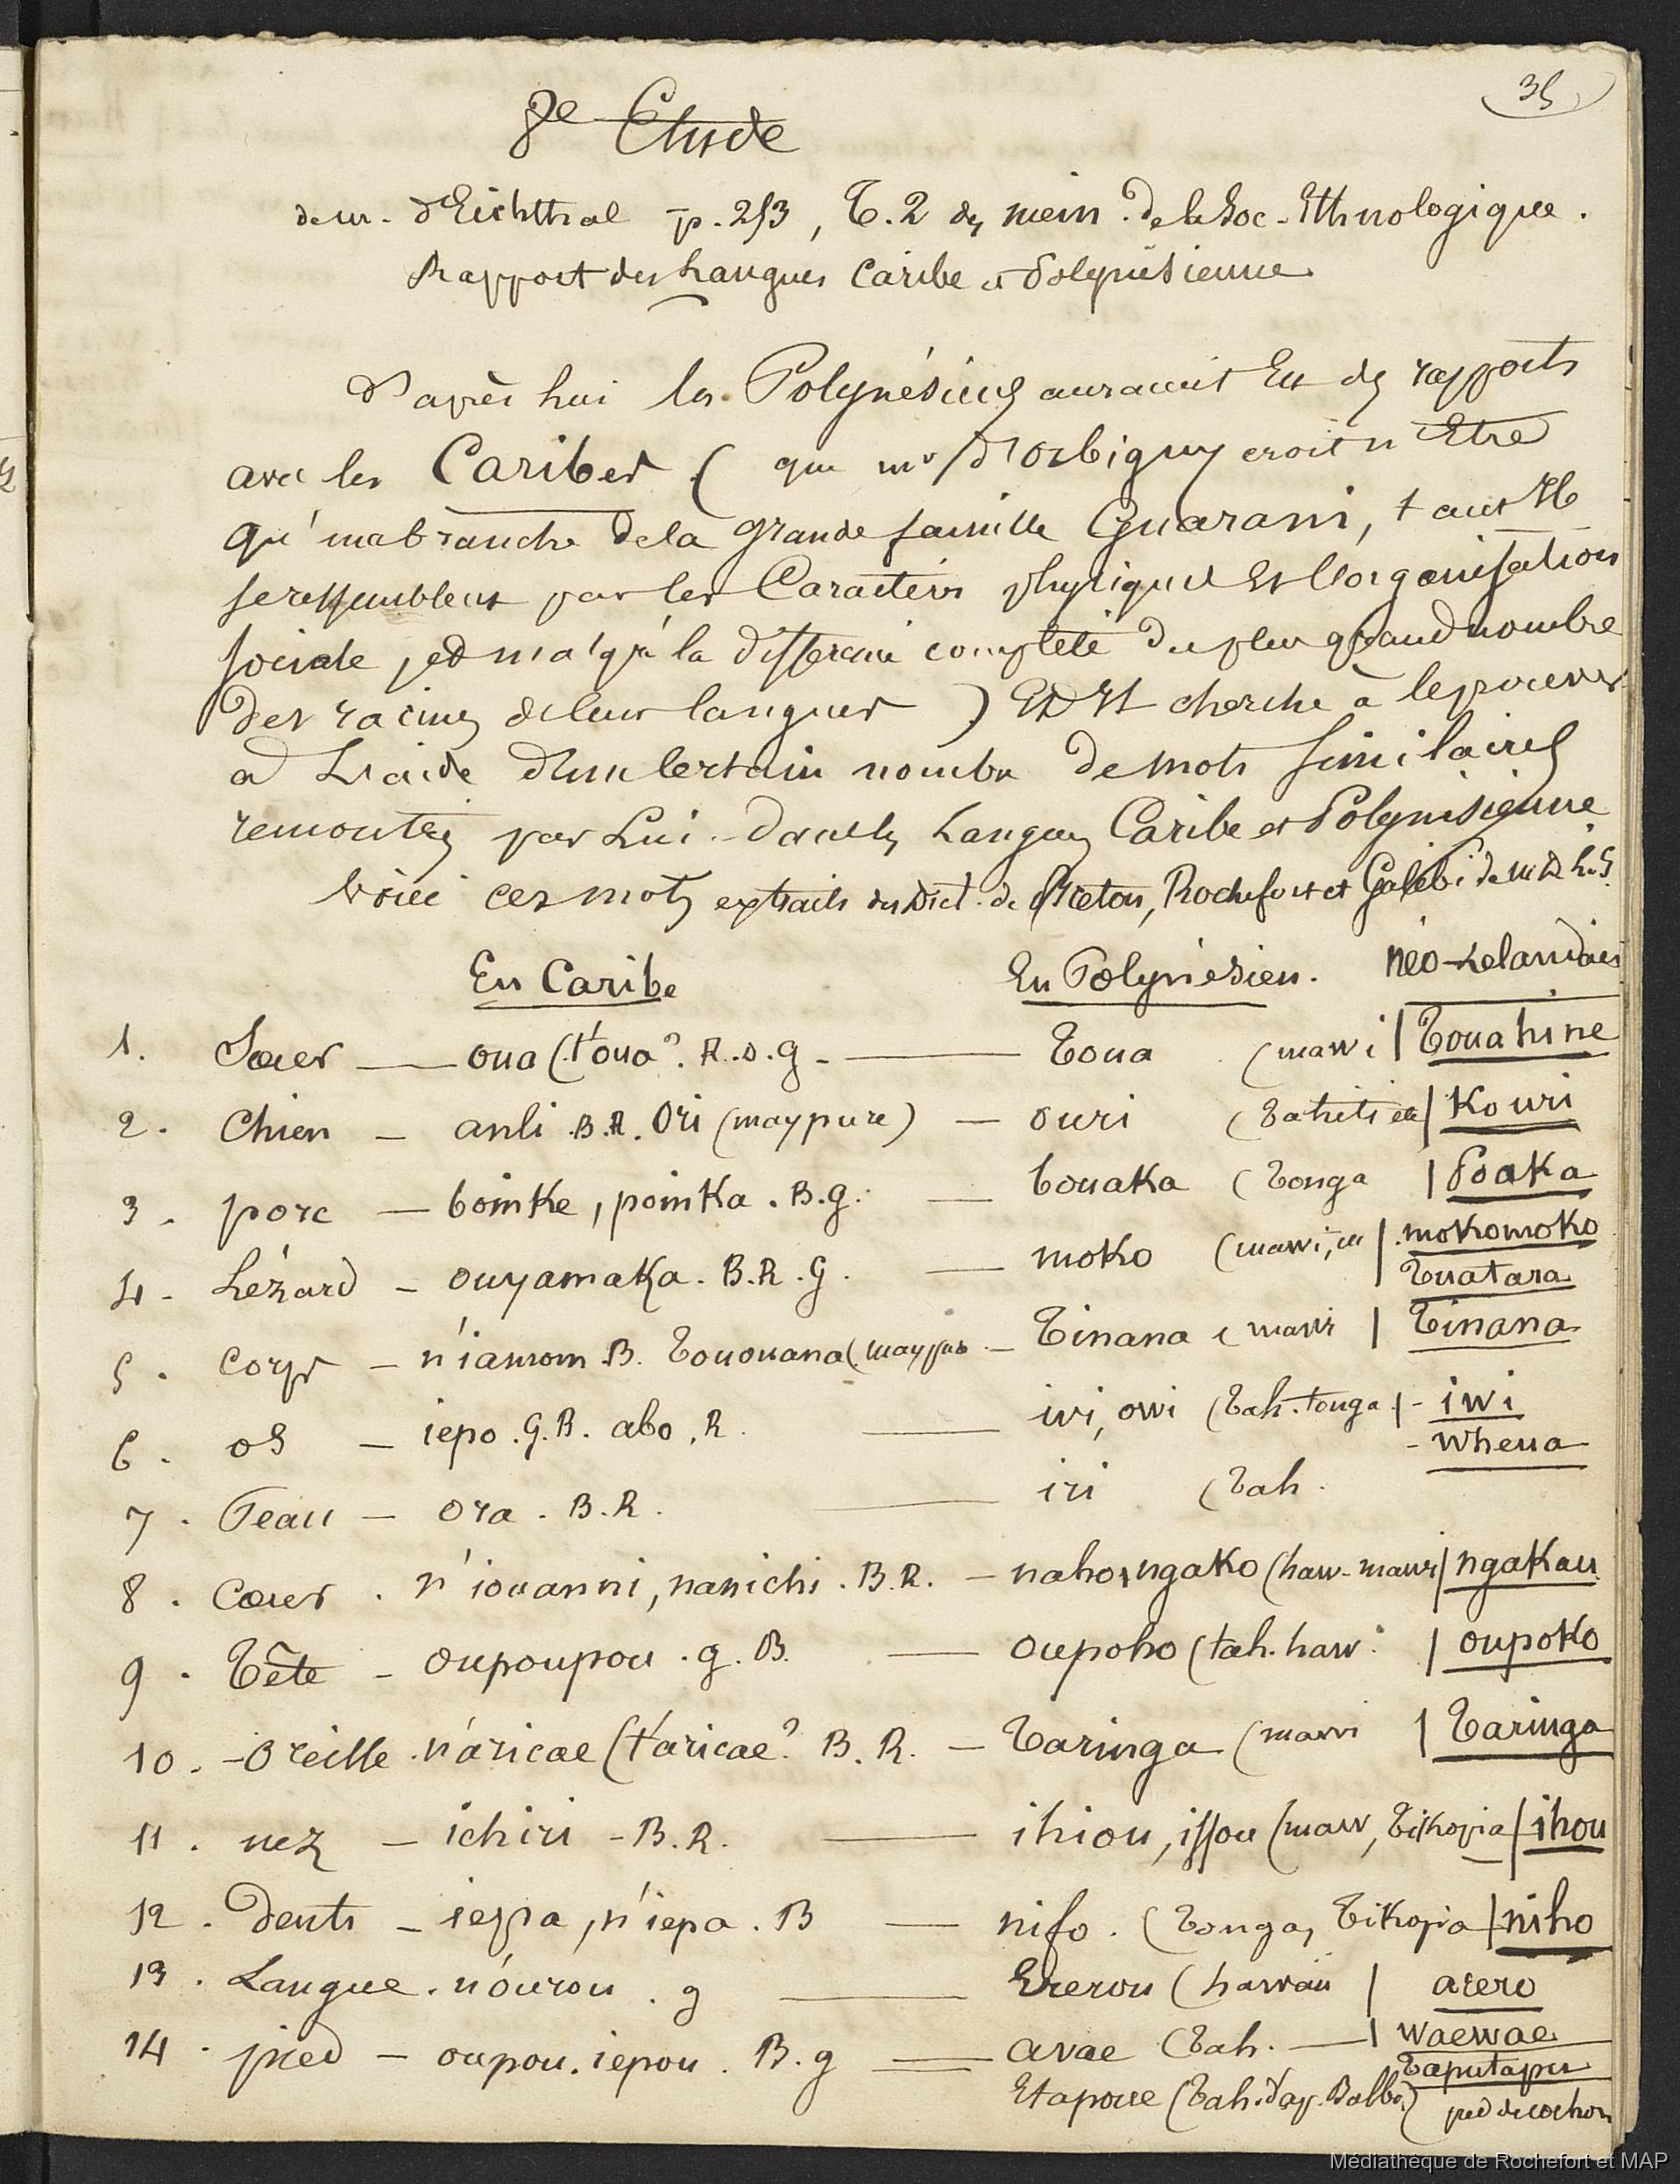 35
8e Etude
de mr. d'Eichthal p. 253, T. 2 des mém. de la Soc. Ethnologique.
Rapport des Langues Caribe et Polynésienne
D'après lui les Polynésiens auraient Eu des rapports
avec les Caribes (que mr d'Orbigny croit n'Etre
qu'une branche de la grande famille Guarani, tant Ils
se ressemblent par les Caractères physiques Et l'organisation
sociale, et malgré la différence complète du plus grand nombre
des racines de leurs langues) Et Il cherche à le prouver
à L'aide d'un certain nombre de mots similaires
remontrés par Lui dans les Langues Caribe et Polynésienne
Voici ces mots extraits du Dict. de Breton, Rochefort et Galibi de
En Caribe En Polynésien. néo-zelandais
1. Soeur — oua (t'oua? R.B.g. — Toua (mawi | Touahine
2. Chien — anli B.R. Ori (maypure) — ouri (Tahiti etc | Kouri
3. porc — boinke, poinka. B.g. — bouaka (Tonga | Poaka
4. Lézard — ouyamaka. B.R.G. — moko (mawi, | mokomoko
Tuatara
5. Corps — n'iamom B. Tououana (maypu — Tinana (mawi | Tinana
6. os — iepo. G.B. abo, R. — ivi, owi (Tah. tonga | - iwi
- wheua
7. Peau — ora. B.R. — iri (Tah.
8. Coeur. n'iouanni, nanichi. B.R. — naho, ngako (haw. mawi | ngakau
9. Tête — oupoupou. g. B. — oupoho (tah. haw. | oupoko
10. - Oreille. n'aricae (t'aricae? B.R. — Taringa (mawi | Taringa
11. nez — ichiri - B.R. — ihiou, issou (maw, Tikopia | ihou
12. Dents — iepa, n'iepa. B — nifo. (Tonga, Tikopia | niho
13. Langue. n'ourou. g — Ererou (hawaii | arero
14. pied — oupou. iepou. B.g — avae (Tah. — | waewae
Taputapu
Etapoue (Tah. d'ap. Balbi) pied de cochon
Médiathèque de Rochefort et MAP